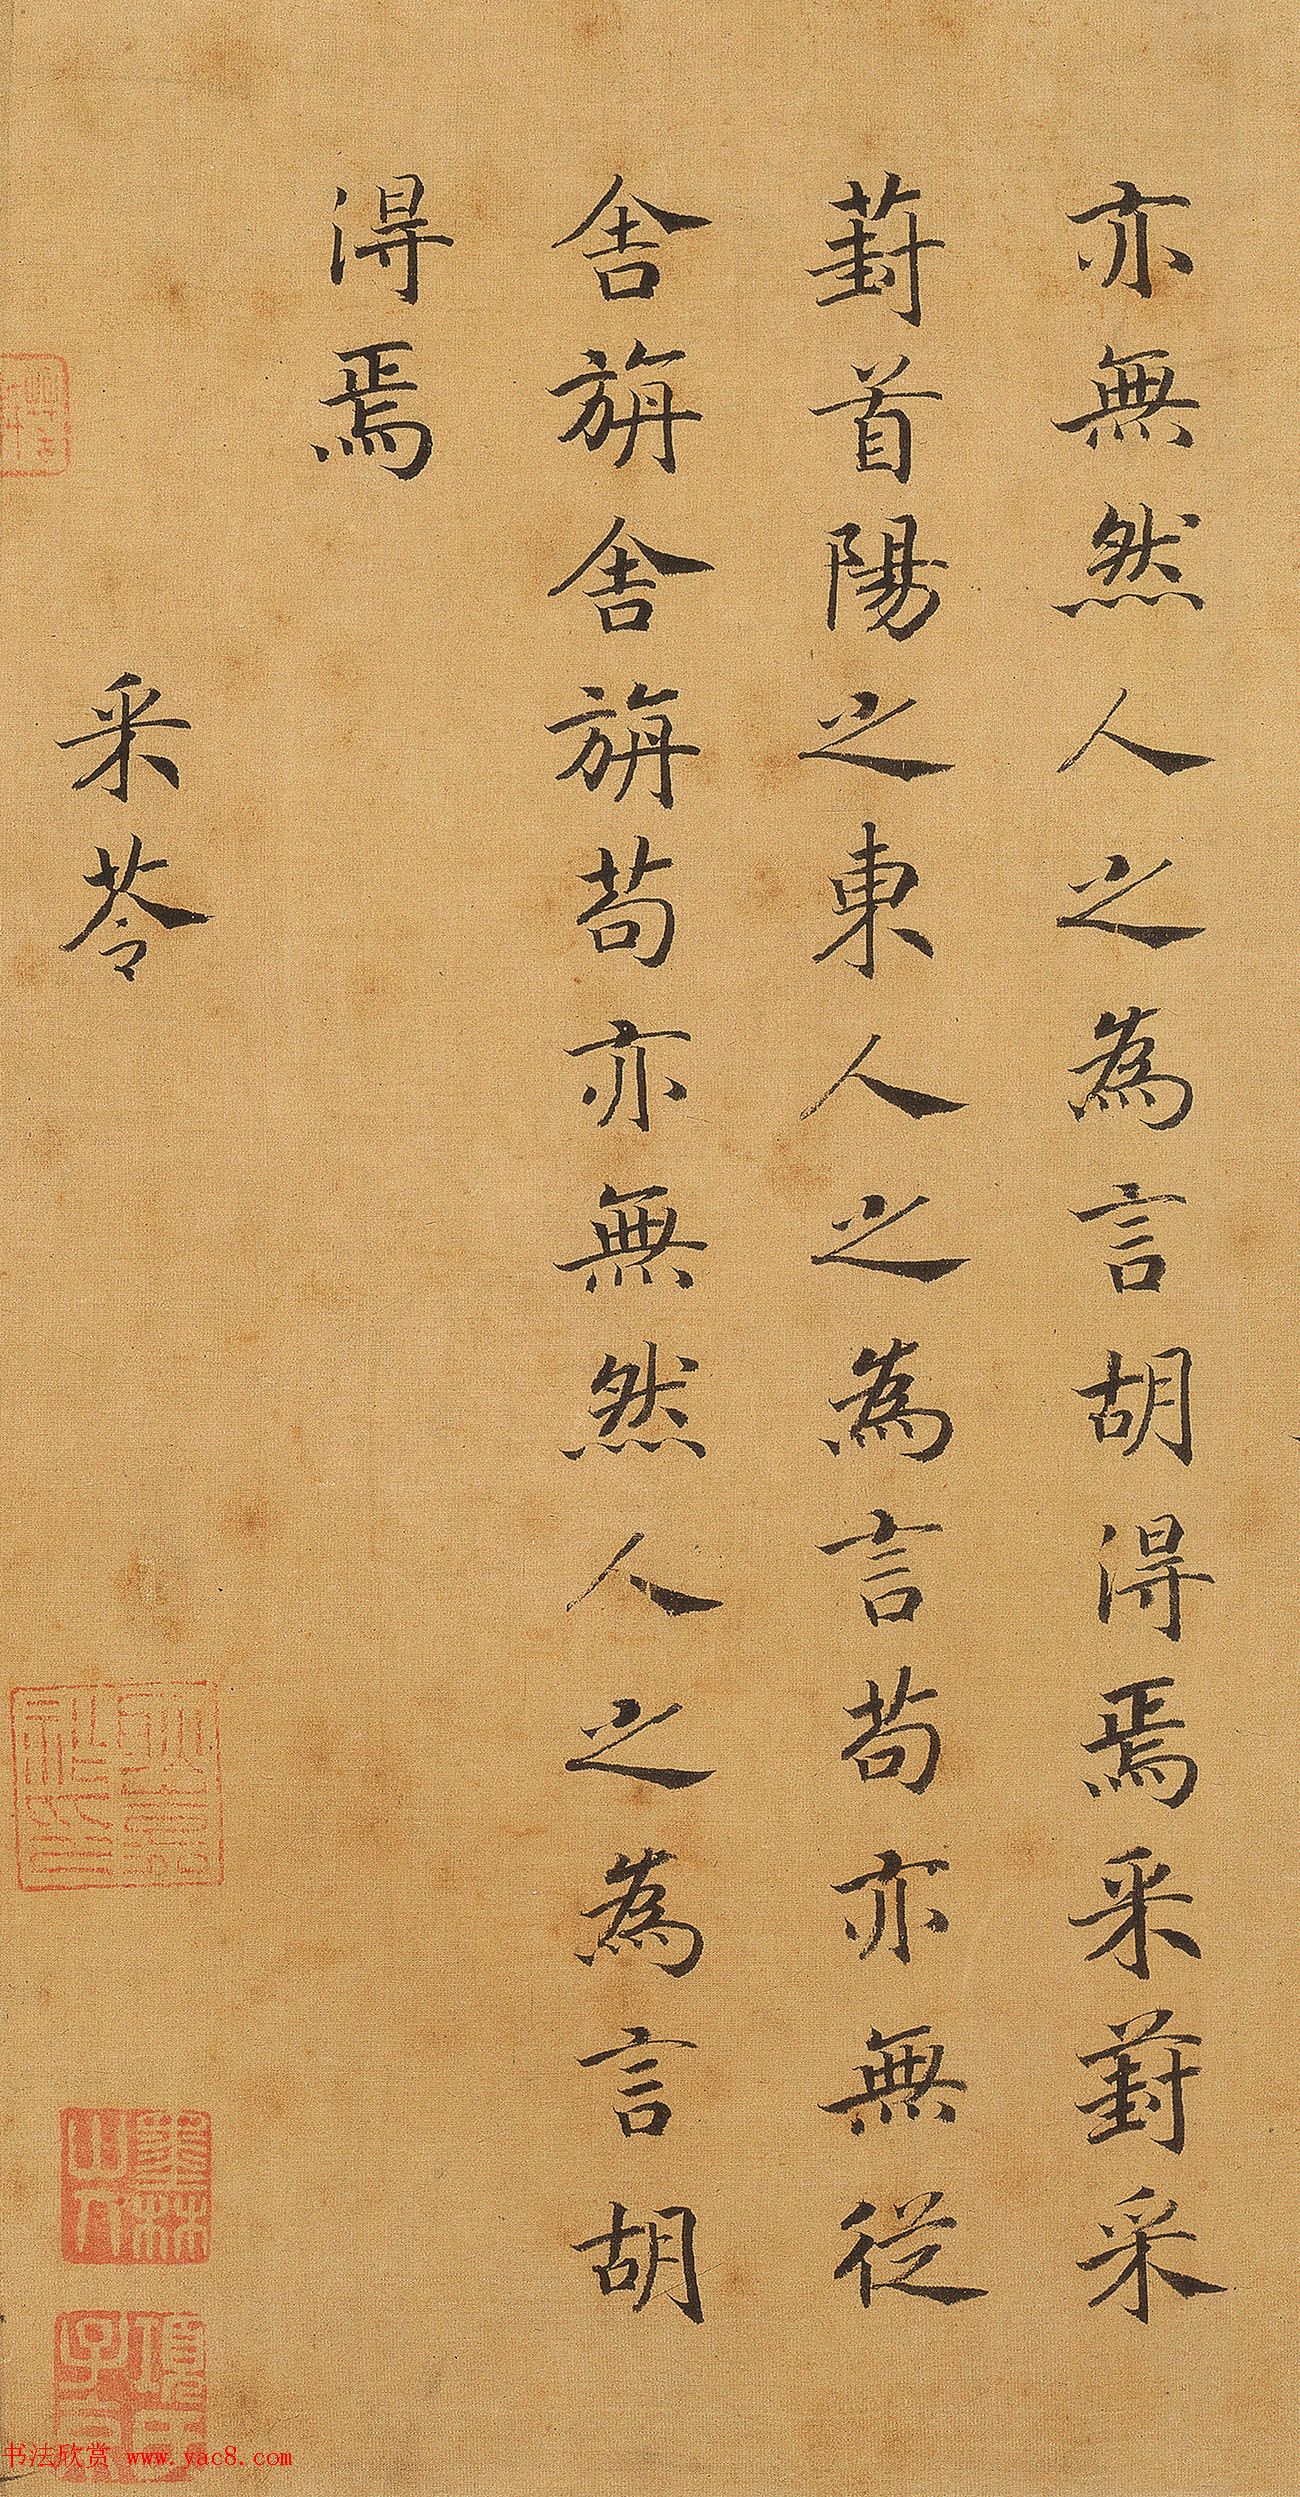 亦無然人之為言胡得焉采葑采
葑首陽之東人之為言苟亦無從
舍旃舍旃苟亦無然人之為言胡
得焉
采苓
墨林山人
书法欣赏 www.yac8.com